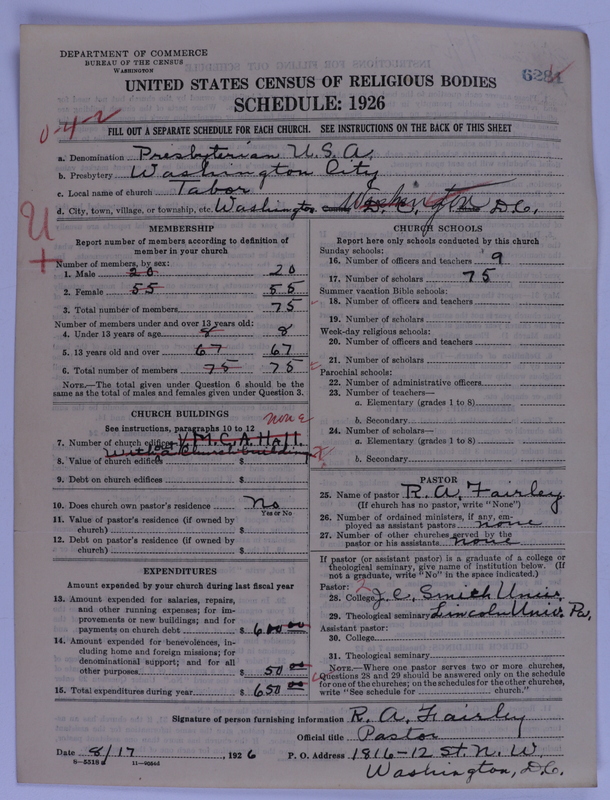 DEPARTMENT OF COMMERCE
BUREAU OF THE CENSUS
WASHINGTON
UNITED STATES CENSUS OF RELIGIOUS BODIES
SCHEDULE: 1926
0-4-2
FILL OUT A SEPARATE SCHEDULE FOR EACH CHURCH. SEE INSTRUCTIONS ON THE BACK OF THIS SHEET
a. Denomination Presbyterian U.S.A.
b. Presbytery Washington City
c. Local name of church Tabor
d. City, town, village, or township, etc. Washington D.C. Washington D.C.
U
+
MEMBERSHIP
Report number of members according to definition of
member in your church
Number of members, by sex:
1. Male 20 20
2. Female 55 55
3. Total number of members 75
Number of members under and over 13 years old:
4. Under 13 years of age 8 8
5. 13 years old and over 67 67
6. Total number of members 75 75
NOTE.—The total given under Question 6 should be the
same as the total of males and females given under Question 3.
CHURCH BUILDINGS
See instructions, paragraphs 10 to 12
none
7. Number of church edifices Y.M.C.A. Hall.
without a church building
8. Value of church edifices $
9. Debt on church edifices $
10. Does church own pastor's residence No
Yes or No
11. Value of pastor's residence (if owned by
church) $
12. Debt on pastor's residence (if owned by
church) $
EXPENDITURES
Amount expended by your church during last fiscal year
13. Amount expended for salaries, repairs,
and other running expenses; for im-
provements or new buildings; and for
payments on church debt $ 600 00
14. Amount expended for benevolences, in-
cluding home and foreign missions; for
denominational support; and for all
other purposes $ 50 00
15. Total expenditures during year $ 650 00
CHURCH SCHOOLS
Report here only schools conducted by this church
Sunday schools:
16. Number of officers and teachers 9
17. Number of scholars 75
Summer vacation Bible schools:
18. Number of officers and teachers
19. Number of scholars
Week-day religious schools:
20. Number of officers and teachers
21. Number of scholars
Parochial schools:
22. Number of administrative officers
23. Number of teachers—
a. Elementary (grades 1 to 8)
b. Secondary
24. Number of scholars—
a. Elementary (grades 1 to 8)
b. Secondary
PASTOR
25. Name of pastor R. A. Fairley
(If church has no pastor, write "None")
26. Number of ordained ministers, if any, em-
ployed as assistant pastors none
27. Number of other churches served by the
pastor or his assistants none
If pastor (or assistant pastor) is a graduate of a college or
theological seminary, give name of institution below. (If
not a graduate, write "No" in the space indicated.)
Pastor: 2
28. College J. C. Smith Univ.
29. Theological seminary Lincoln Univ. Pa.
Assistant pastor:
30. College
31. Theological seminary
NOTE.—Where one pastor serves two or more churches,
Questions 28 and 29 should be answered only on the schedule
for one of the churches; on the schedules for the other churches,
write "See schedule for church."
Signature of person furnishing information R. A. Fairley
Official title Pastor
Date 8/17, 1926 P. O. Address 1816-12 St. N. W.
Washington, D.C.